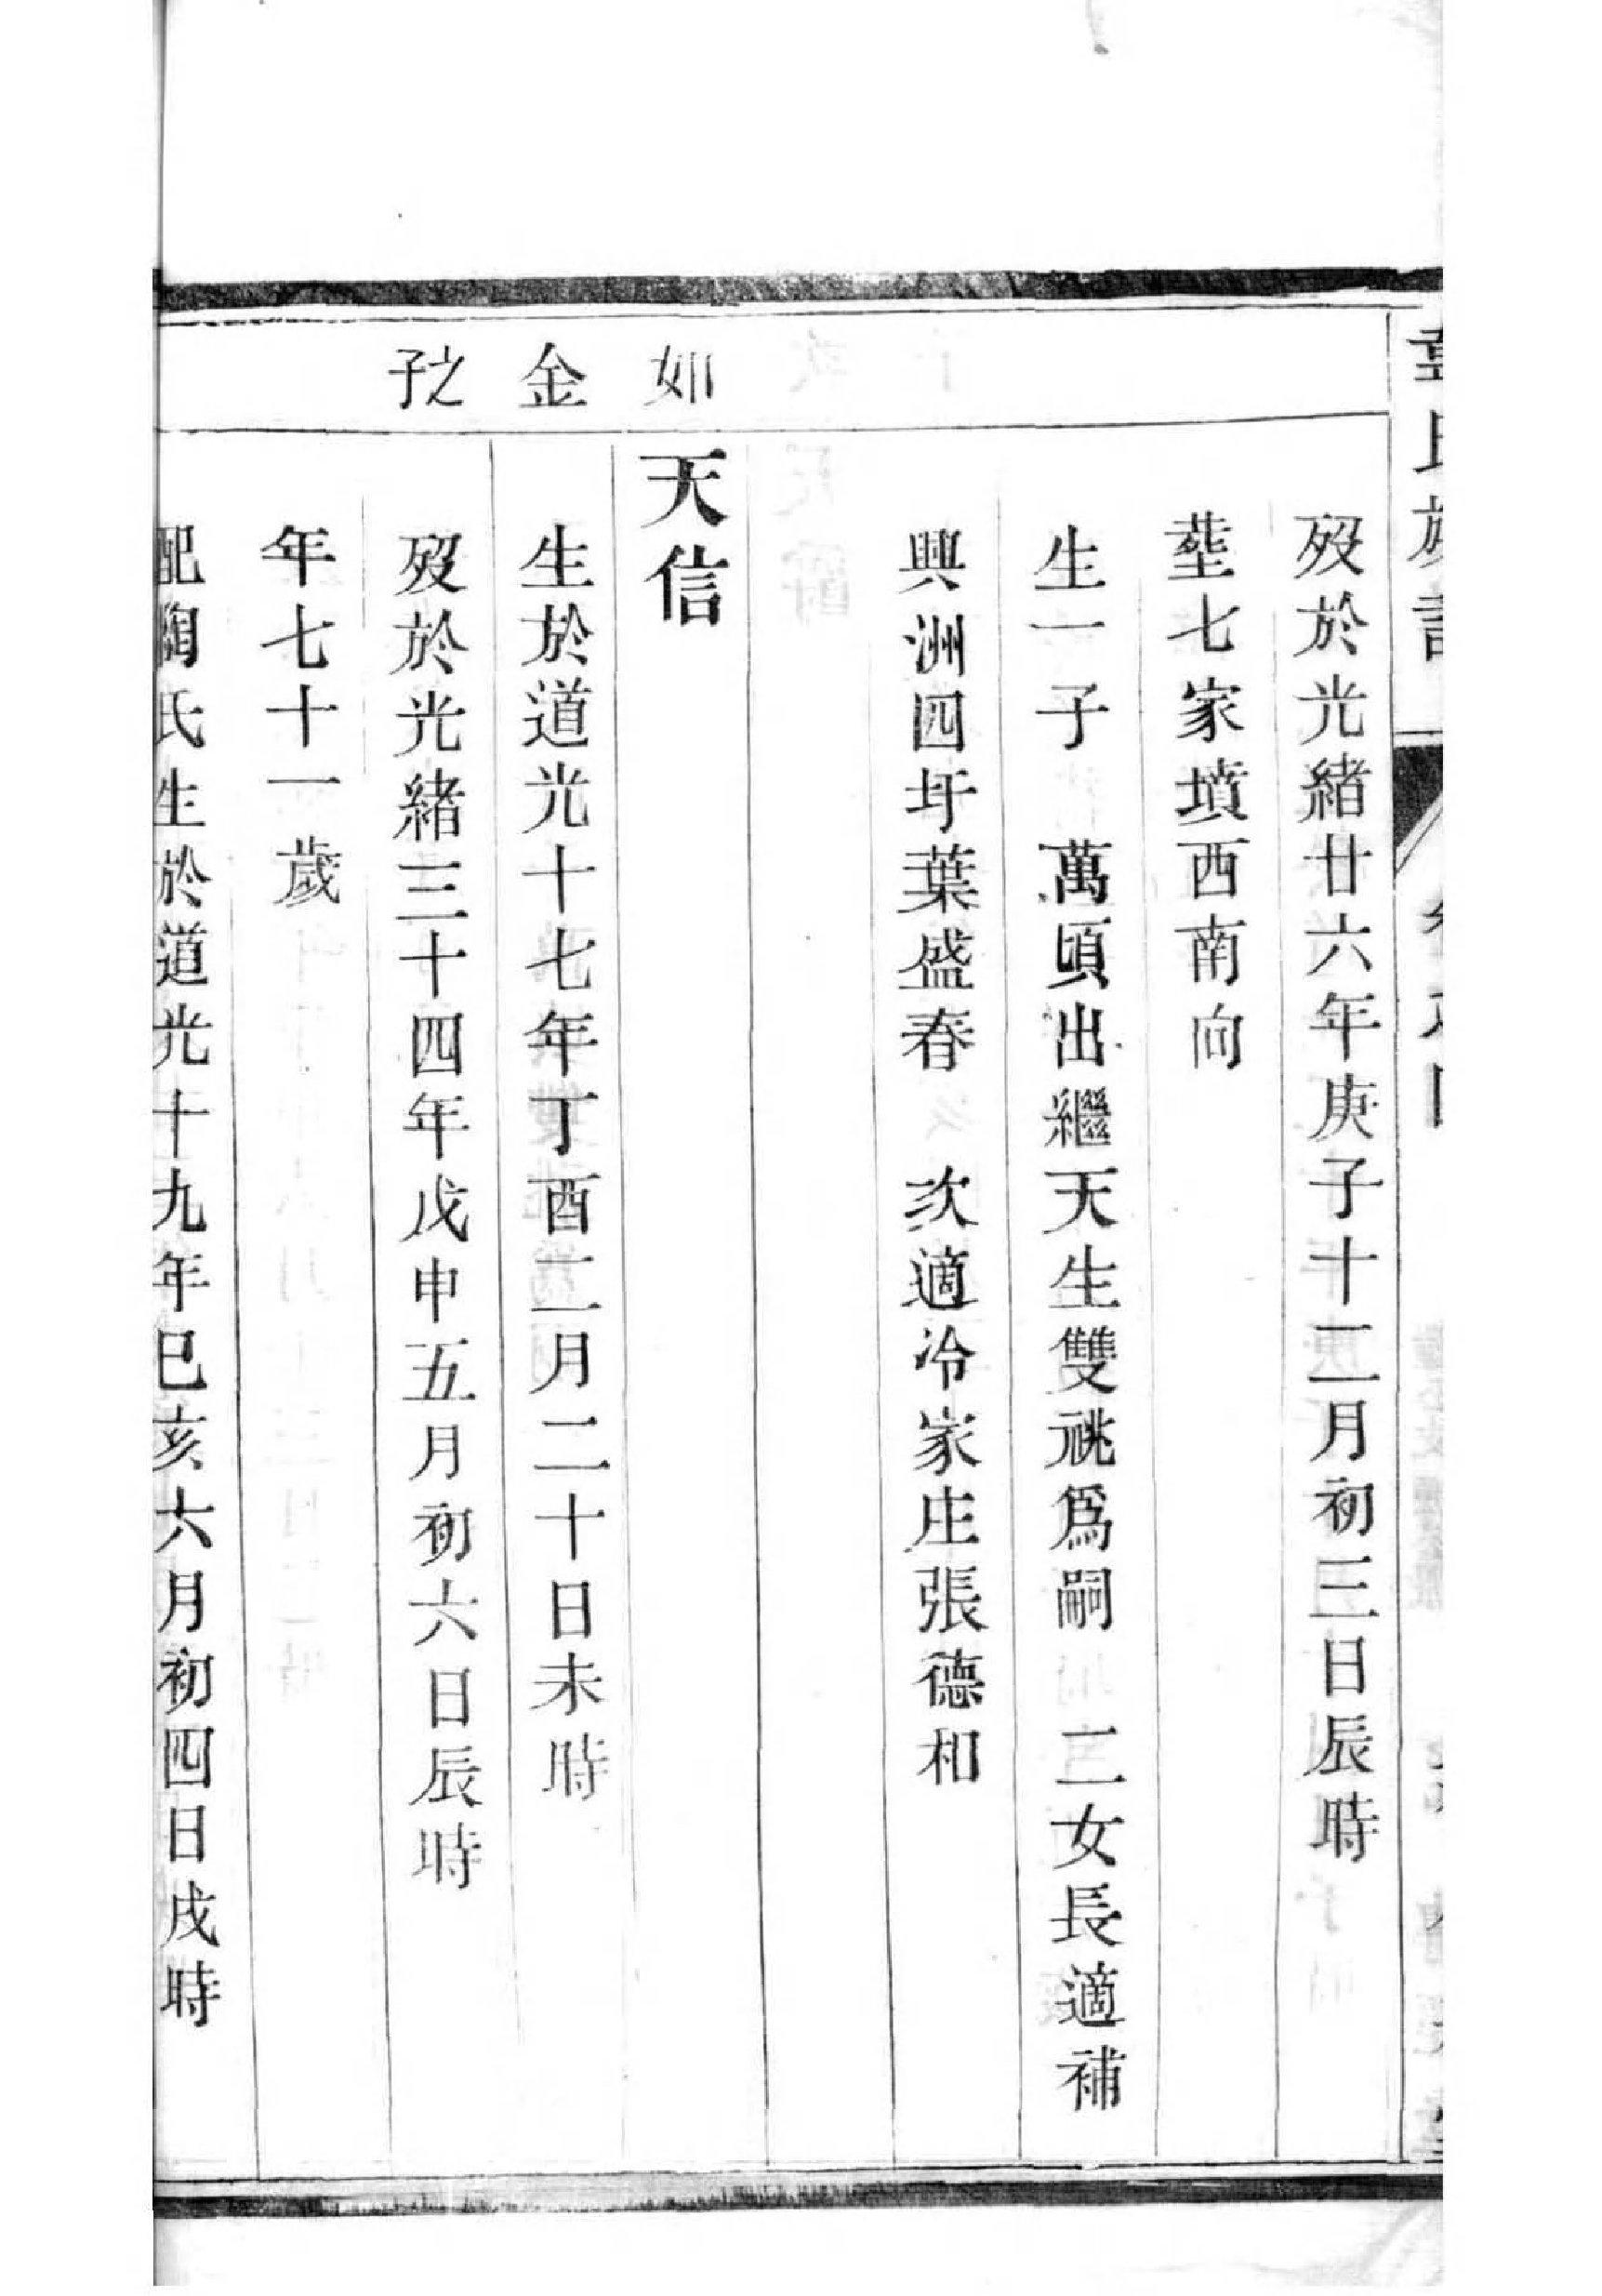 歿於光緒廿六年庚子十二月初三日辰時
塟七家墳西南向
生一子 萬頃出繼天生雙祧爲嗣 二女長適補
興洲四圩葉盛春 次適冷家庄張德相
如
天信
金
生於道光十七年丁酉二月二十日未時
之子
歿於光緒三十四年戊申五月初六日辰時
年七十一歲
配陶氏生於道光十九年巳亥六月初四日戌時